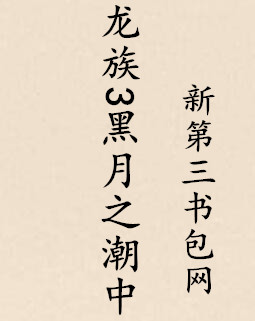 龙族3黑月之潮中
新第三书包网